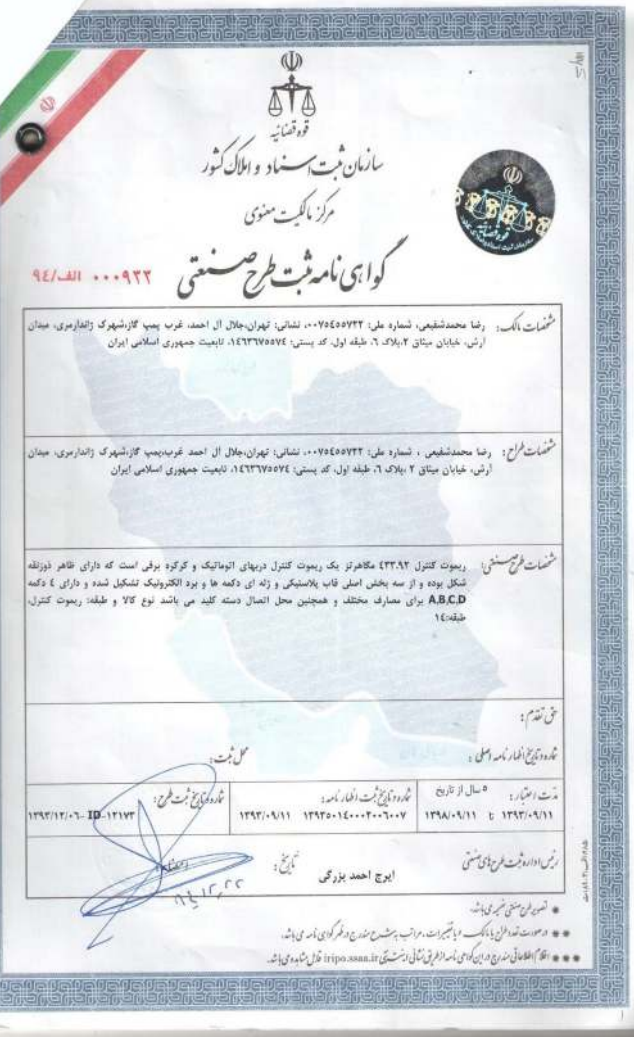 قوه قضائیه
سازمان ثبت اسناد و املاک کشور
مرکز مالکیت معنوی
گواهی نامه ثبت طرح صنعتی
۰۰۰۹۳۳ الف/۹٤
مشخصات مالک: رضا محمدشفیعی، شماره ملی: ۰۰۷۵٤۵۵۷۲۲، نشانی: تهران،جلال آل احمد، غرب پمپ گاز،شهرک ژاندارمری، میدان
آرش، خیابان میثاق ۲،پلاک ٦، طبقه اول، کد پستی: ۱٤٦۳٦۷۵۵۷٤، تابعیت جمهوری اسلامی ایران
مشخصات طراح: رضا محمدشفیعی ، شماره ملی: ۰۰۷۵٤۵۵۷۲۲، نشانی: تهران،جلال آل احمد غرب،پمپ گاز،شهرک ژاندارمری، میدان
آرش، خیابان میثاق ۲ ،پلاک ٦، طبقه اول، کد پستی: ۱٤٦۳٦۷۵۵۷٤، تابعیت جمهوری اسلامی ایران
مشخصات طرح صنعتی: ریموت کنترل ٤۳۳.۹۲ مگاهرتز یک ریموت کنترل دربهای اتوماتیک و کرکره برقی است که دارای ظاهر ذوزنقه
شکل بوده و از سه بخش اصلی قاب پلاستیکی و ژله ای دکمه ها و برد الکترونیک تشکیل شده و دارای ٤ دکمه
A,B,C,D برای مصارف مختلف و همچنین محل اتصال دسته کلید می باشد نوع کالا و طبقه: ریموت کنترل،
طبقه:۱٤
حق تقدم:
شماره و تاریخ اظهارنامه اصلی: محل ثبت:
مدت اعتبار: ۵ سال از تاریخ شماره و تاریخ ثبت اظهارنامه: شماره و تاریخ ثبت طرح:
۱۳۹۳/۰۹/۱۱ تا ۱۳۹۸/۰۹/۱۱ ۱۳۹۳۵۰۱٤۰۰۰۲۰۰٦۰۰۷ ۱۳۹۳/۰۹/۱۱ ID-۱۲۱۷۳ ۱۳۹۳/۱۲/۰٦
رئیس اداره ثبت طرح های صنعتی تاریخ:
ایرج احمد بزرگی
تصویر طرح صنعتی ضمیمه می باشد.
در صورت تعدد طراح یا مالک و یا تغییرات، مراتب به شرح مندرج در ظهر گواهی نامه می باشد.
اقلام اطلاعاتی مندرج در این گواهی نامه از طریق نشانی اینترنتی iripo.ssaa.ir قابل مشاهده می باشد.